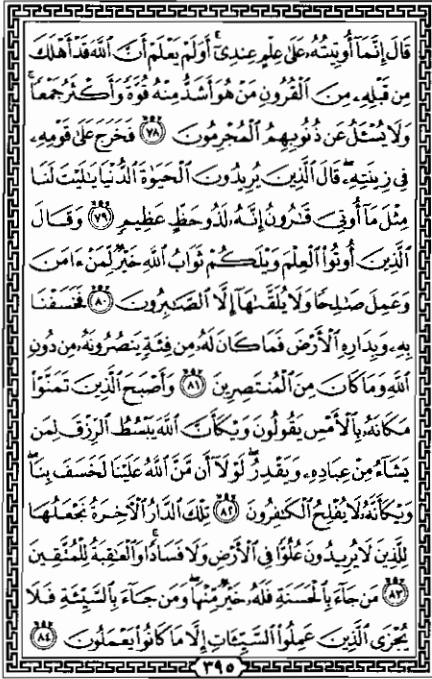 قَالَ إِنَّمَآ أُوتِيتُهُۥ عَلَىٰ عِلْمٍ عِندِىٓ ۚ أَوَلَمْ يَعْلَمْ أَنَّ ٱللَّهَ قَدْ أَهْلَكَ
مِن قَبْلِهِۦ مِنَ ٱلْقُرُونِ مَنْ هُوَ أَشَدُّ مِنْهُ قُوَّةً وَأَكْثَرُ جَمْعًا ۚ
وَلَا يُسْـَٔلُ عَن ذُنُوبِهِمُ ٱلْمُجْرِمُونَ ٧٨ فَخَرَجَ عَلَىٰ قَوْمِهِۦ
فِى زِينَتِهِۦ ۖ قَالَ ٱلَّذِينَ يُرِيدُونَ ٱلْحَيَوٰةَ ٱلدُّنْيَا يَـٰلَيْتَ لَنَا
مِثْلَ مَآ أُوتِىَ قَـٰرُونُ إِنَّهُۥ لَذُو حَظٍّ عَظِيمٍ ٧٩ وَقَالَ
ٱلَّذِينَ أُوتُوا۟ ٱلْعِلْمَ وَيْلَكُمْ ثَوَابُ ٱللَّهِ خَيْرٌ لِّمَنْ ءَامَنَ
وَعَمِلَ صَـٰلِحًا وَلَا يُلَقَّىٰهَآ إِلَّا ٱلصَّـٰبِرُونَ ٨٠ فَخَسَفْنَا
بِهِۦ وَبِدَارِهِ ٱلْأَرْضَ فَمَا كَانَ لَهُۥ مِن فِئَةٍ يَنصُرُونَهُۥ مِن دُونِ
ٱللَّهِ وَمَا كَانَ مِنَ ٱلْمُنتَصِرِينَ ٨١ وَأَصْبَحَ ٱلَّذِينَ تَمَنَّوْا۟
مَكَانَهُۥ بِٱلْأَمْسِ يَقُولُونَ وَيْكَأَنَّ ٱللَّهَ يَبْسُطُ ٱلرِّزْقَ لِمَن
يَشَآءُ مِنْ عِبَادِهِۦ وَيَقْدِرُ ۖ لَوْلَآ أَن مَّنَّ ٱللَّهُ عَلَيْنَا لَخَسَفَ بِنَا ۖ
وَيْكَأَنَّهُۥ لَا يُفْلِحُ ٱلْكَـٰفِرُونَ ٨٢ تِلْكَ ٱلدَّارُ ٱلْـَٔاخِرَةُ نَجْعَلُهَا
لِلَّذِينَ لَا يُرِيدُونَ عُلُوًّا فِى ٱلْأَرْضِ وَلَا فَسَادًا ۚ وَٱلْعَـٰقِبَةُ لِلْمُتَّقِينَ
٨٣ مَن جَآءَ بِٱلْحَسَنَةِ فَلَهُۥ خَيْرٌ مِّنْهَا ۖ وَمَن جَآءَ بِٱلسَّيِّئَةِ فَلَا
يُجْزَى ٱلَّذِينَ عَمِلُوا۟ ٱلسَّيِّـَٔاتِ إِلَّا مَا كَانُوا۟ يَعْمَلُونَ ٨٤
٣٩٥